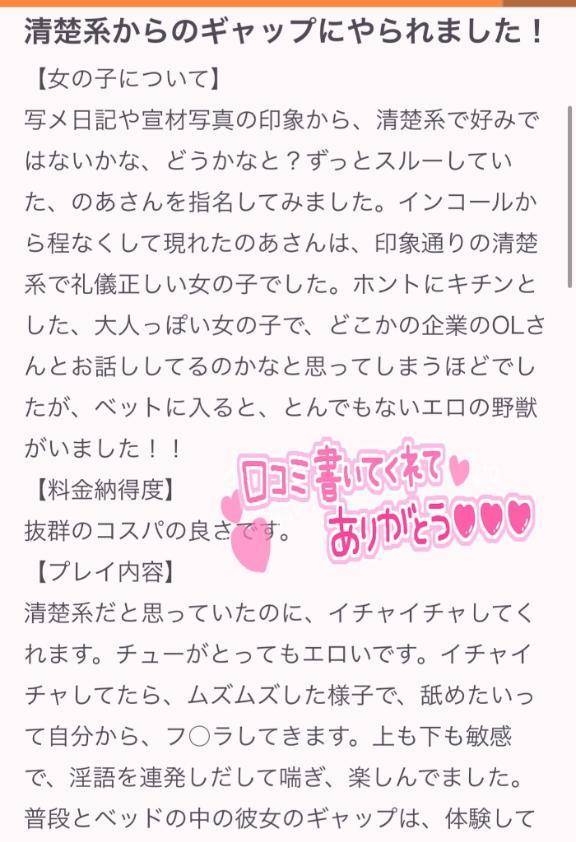 清楚系からのギャップにやられました！
【女の子について】
写メ日記や宣材写真の印象から、清楚系で好みで
はないかな、どうかなと？ずっとスルーしてい
た、のあさんを指名してみました。インコールか
ら程なくして現れたのあさんは、印象通りの清楚
系で礼儀正しい女の子でした。ホントにキチンと
した、大人っぽい女の子で、どこかの企業のOLさ
んとお話ししてるのかなと思ってしまうほどでし
たが、ベットに入ると、とんでもないエロの野獣
がいました！！
【料金納得度】
抜群のコスパの良さです。
口コミ書いてくれて
ありがとう
【プレイ内容】
清楚系だと思っていたのに、イチャイチャしてく
れます。チューがとってもエロいです。イチャイ
チャしてたら、ムズムズした様子で、舐めたいっ
て自分から、フ〇ラしてきます。上も下も敏感
で、淫語を連発しだして喘ぎ、楽しんでました。
普段とベッドの中の彼女のギャップは、体験して